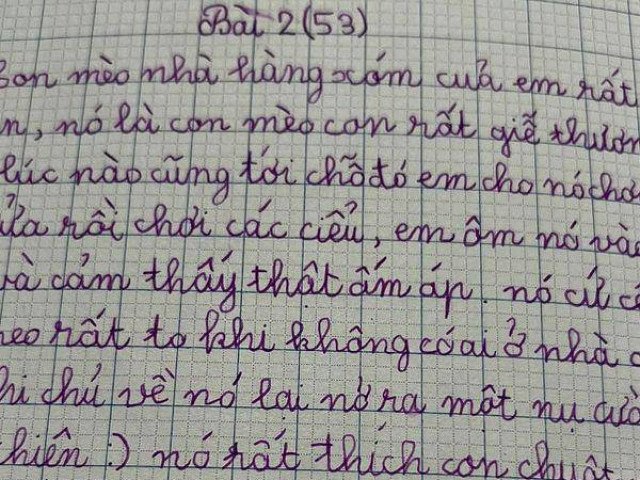 Bài 2 (53)
Con mèo nhà hàng xóm cuả em rất
nó là con mèo con rất giễ thươn
lúc nào cũng tới chỗ đó em cho nó chơi
rồi chơi các ciểu, em ôm nó và
và cảm thấy thật ấm áp. nó cứ
rất to khi không có ai ở nhà
chú về nó lại nở ra một nụ cườ
:) nó rất thích con chuột